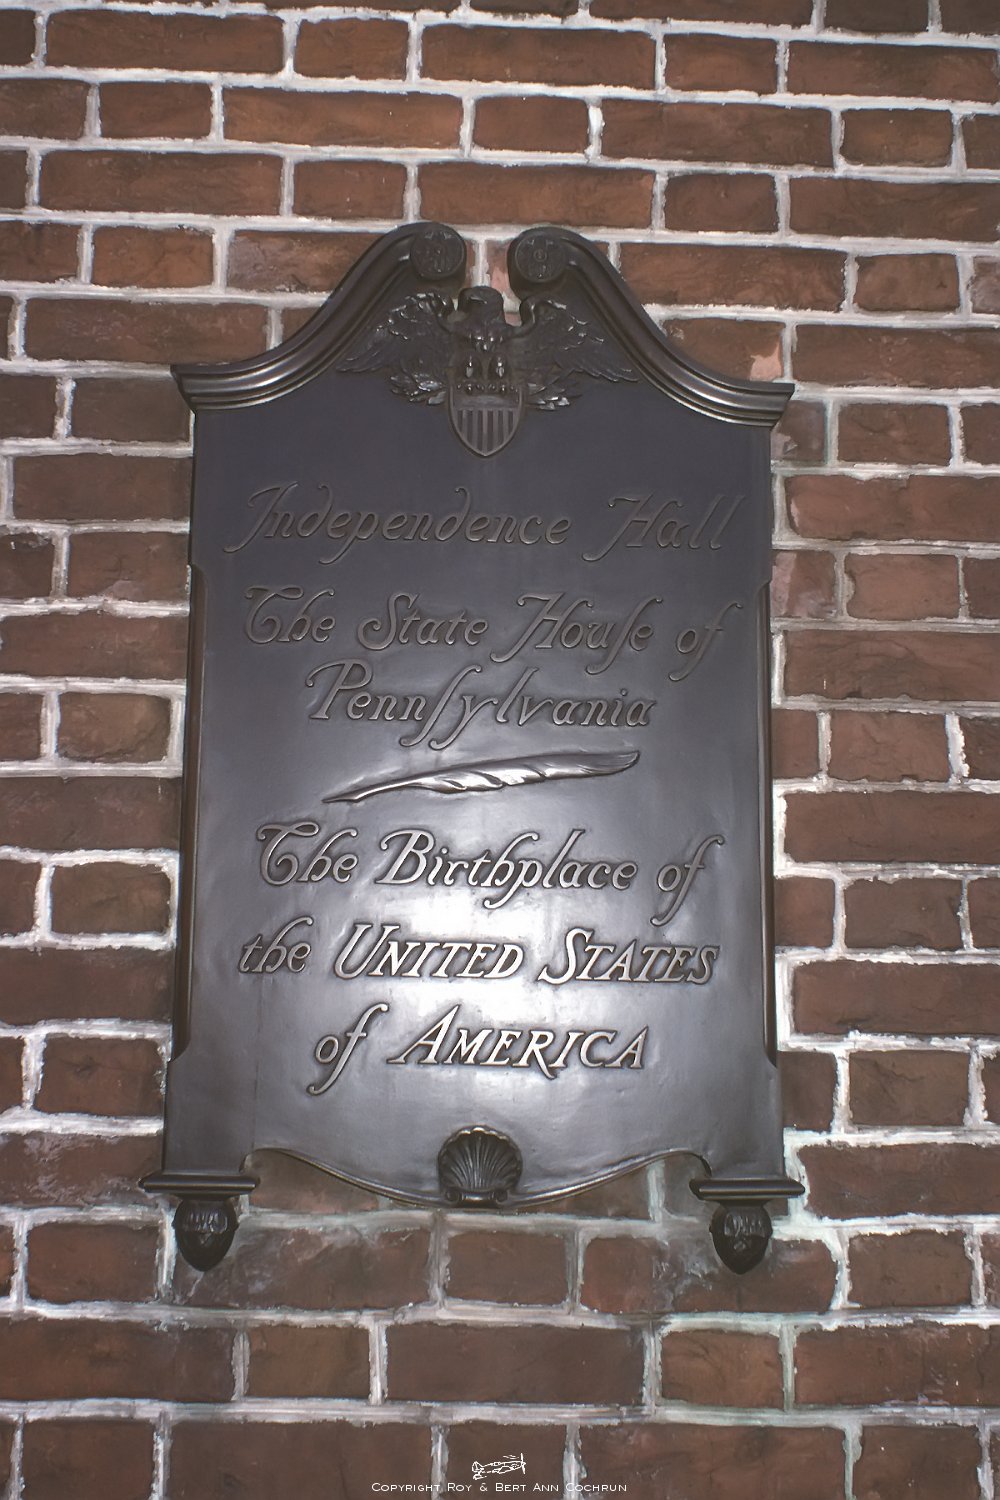 Independence Hall
The State Houſe of
Pennſylvania
The Birthplace of
the UNITED STATES
of AMERICA
COPYRIGHT ROY & BERT ANN COCHRUN